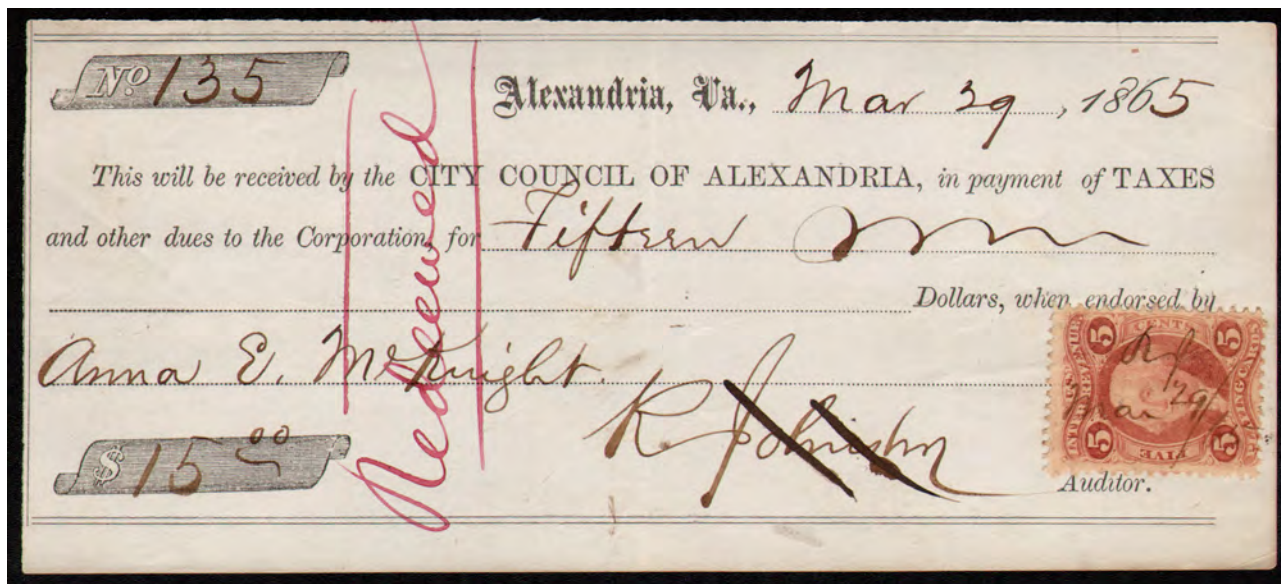 No 135
Alexandria, Va., Mar 29, 1865
This will be received by the CITY COUNCIL OF ALEXANDRIA, in payment of TAXES
and other dues to the Corporation, for Fifteen
Dollars, when endorsed by
Anna E. McKnight.
$15 00
R Johnston
Auditor.
Redeemed
5 CENTS 5
INTER. REVENUE
PLAYING CARDS
RJ
Mar 29/
5 FIVE 5